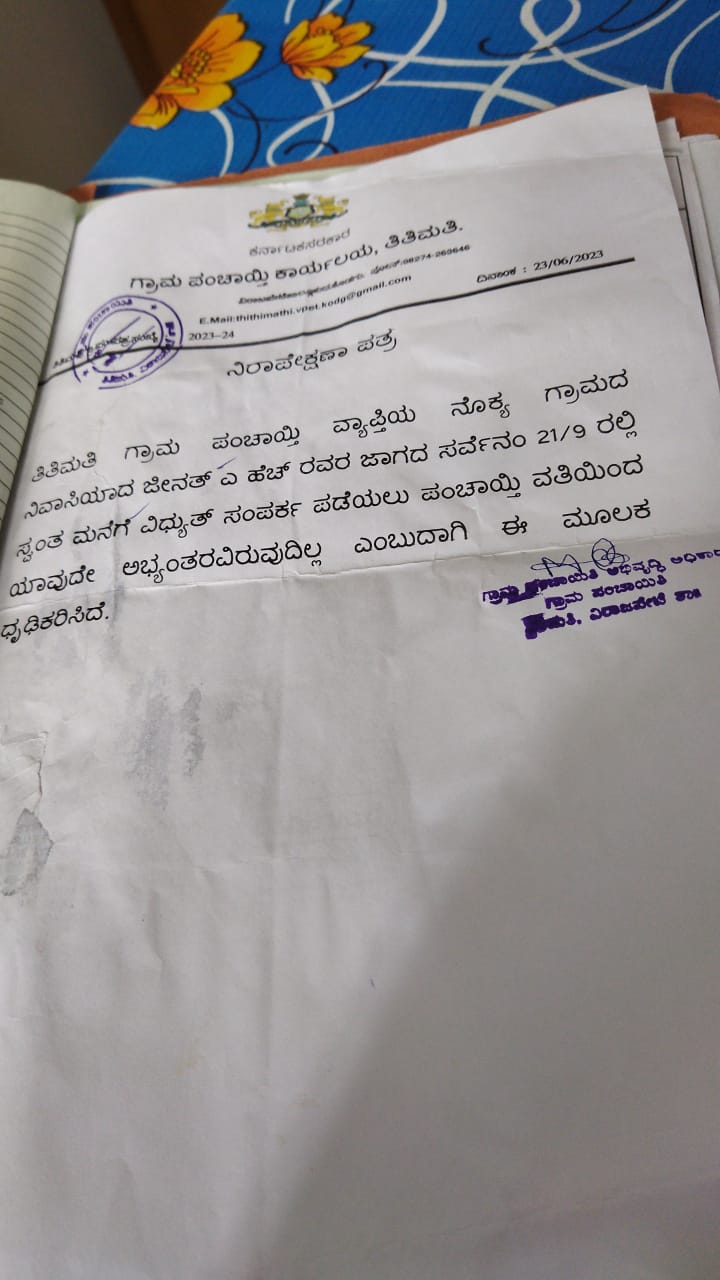 ಕರ್ನಾಟಕಸರಕಾರ
ಗ್ರಾಮ ಪಂಚಾಯ್ತಿ ಕಾರ್ಯಲಯ, ತಿತಿಮತಿ.
ಪೋನ್:08274-263646
E.Mail:thithimathi.vpet.kodg@gmail.com
ದಿನಾಂಕ : 23/06/2023
2023–24
ನಿರಾಪೇಕ್ಷಣಾ ಪತ್ರ
ತಿತಿಮತಿ ಗ್ರಾಮ ಪಂಚಾಯ್ತಿ ವ್ಯಾಪ್ತಿಯ ನೊಕ್ಯ ಗ್ರಾಮದ
ನಿವಾಸಿಯಾದ ಜೀನತ್ ಎ ಹೆಚ್ ರವರ ಜಾಗದ ಸರ್ವೆನಂ 21/9 ರಲ್ಲಿ
ಸ್ವಂತ ಮನೆಗೆ ವಿಧ್ಯುತ್ ಸಂಪರ್ಕ ಪಡೆಯಲು ಪಂಚಾಯ್ತಿ ವತಿಯಿಂದ
ಯಾವುದೇ ಅಭ್ಯಂತರವಿರುವುದಿಲ್ಲ ಎಂಬುದಾಗಿ ಈ ಮೂಲಕ
ಧೃಢಿಕರಿಸಿದೆ.
ಗ್ರಾಮ ಪಂಚಾಯಿತಿ ಅಭಿವೃದ್ಧಿ
ಗ್ರಾಮ ಪಂಚಾಯಿತಿ
ವಿರಾಜಪೇಟೆ